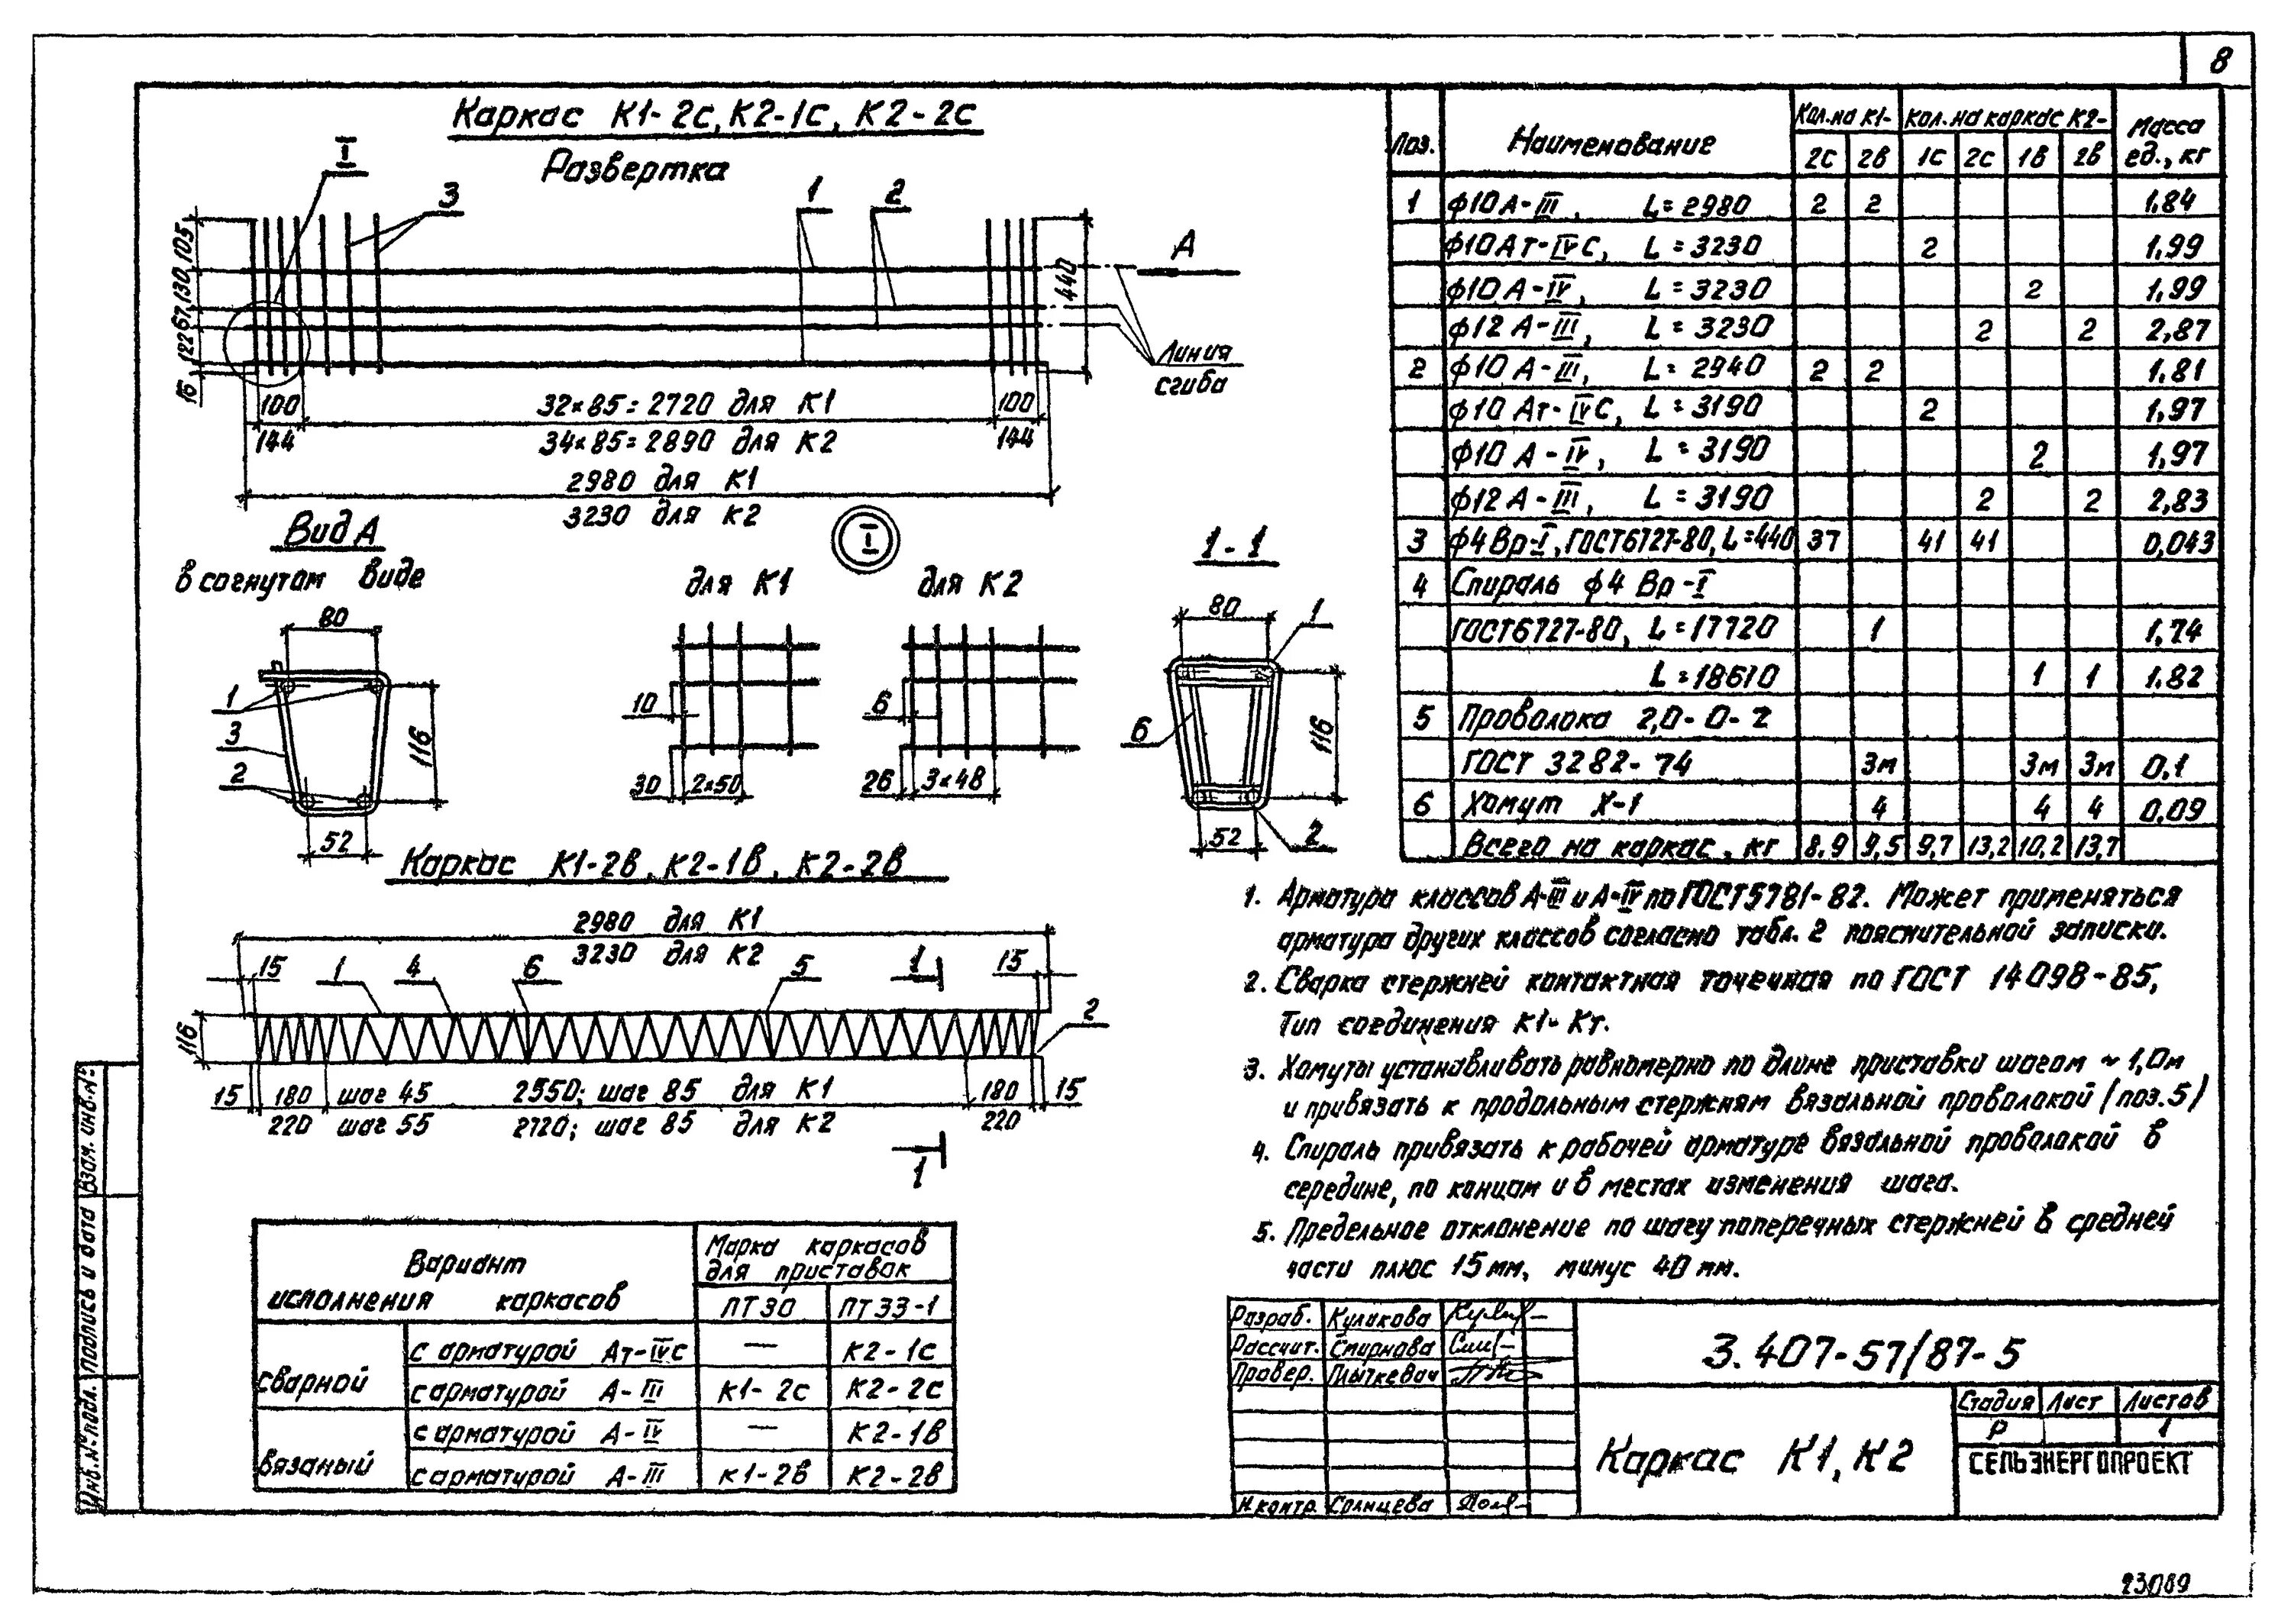 8
Каркас К1-2с, К2-1с, К2-2с
Развертка
I
3
1
2
А
105
130
67
122
16
440
Линия
сгиба
100
32×85=2720 для К1
100
144
34×85=2890 для К2
144
2980 для К1
3230 для К2
Вид А
в согнутом виде
80
1
3
2
116
52
I
для К1
для К2
10
30
2×50
6
26
3×48
1-1
80
1
6
116
52
2
Каркас К1-2в, К2-1в, К2-2в
2980 для К1
3230 для К2
15
1
4
6
5
1
15
116
2
15
180 шаг 45
2550; шаг 85 для К1
180
15
220 шаг 55
2720; шаг 85 для К2
220
1
Вариант исполнения каркасов
Марка каркасов для приставок
ПТ30
ПТ33-1
сварной
с арматурой Ат-IVС
—
К2-1с
с арматурой А-III
К1-2с
К2-2с
вязаный
с арматурой А-IV
—
К2-1в
с арматурой А-III
К1-2в
К2-2в
Поз.
Наименование
Кол.на К1-
Кол.на каркас К2-
Масса ед., кг
2с 2в 1с 2с 1в 2в
1 ф10А-III, L=2980 2 2 1,84
ф10Ат-IVС, L=3230 2 1,99
ф10А-IV, L=3230 2 1,99
ф12А-III, L=3230 2 2 2,87
2 ф10А-III, L=2940 2 2 1,81
ф10Ат-IVС, L=3190 2 1,97
ф10А-IV, L=3190 2 1,97
ф12А-III, L=3190 2 2 2,83
3 ф4Вр-I, ГОСТ6727-80, L=440 37 41 41 0,043
4 Спираль ф4 Вр-I
ГОСТ6727-80, L=17720 1 1,74
L=18610 1 1 1,82
5 Проволока 2,0-0-2
ГОСТ 3282-74 3м 3м 3м 0,1
6 Хомут Х-1 4 4 4 0,09
Всего на каркас, кг 8,9 9,5 9,7 13,2 10,2 13,7
1. Арматура классов А-III и А-IV по ГОСТ5781-82. Может применяться
арматура других классов согласно табл. 2 пояснительной записки.
2. Сварка стержней контактная точечная по ГОСТ 14098-85,
Тип соединения К1-Кт.
3. Хомуты устанавливать равномерно по длине приставки шагом ~1,0м
и привязать к продольным стержням вязальной проволокой (поз.5)
4. Спираль привязать к рабочей арматуре вязальной проволокой в
середине, по концам и в местах изменения шага.
5. Предельное отклонение по шагу поперечных стержней в средней
части плюс 15мм, минус 40мм.
Разраб. Куликова
Рассчит. Смирнова
Провер. Плычкевич
Н.контр. Солнцева
3.407-57/87-5
Каркас К1, К2
Стадия Лист Листов
Р 1
СЕЛЬЭНЕРГОПРОЕКТ
Инв.№подл. Подпись и дата Взам. инв.№
23089